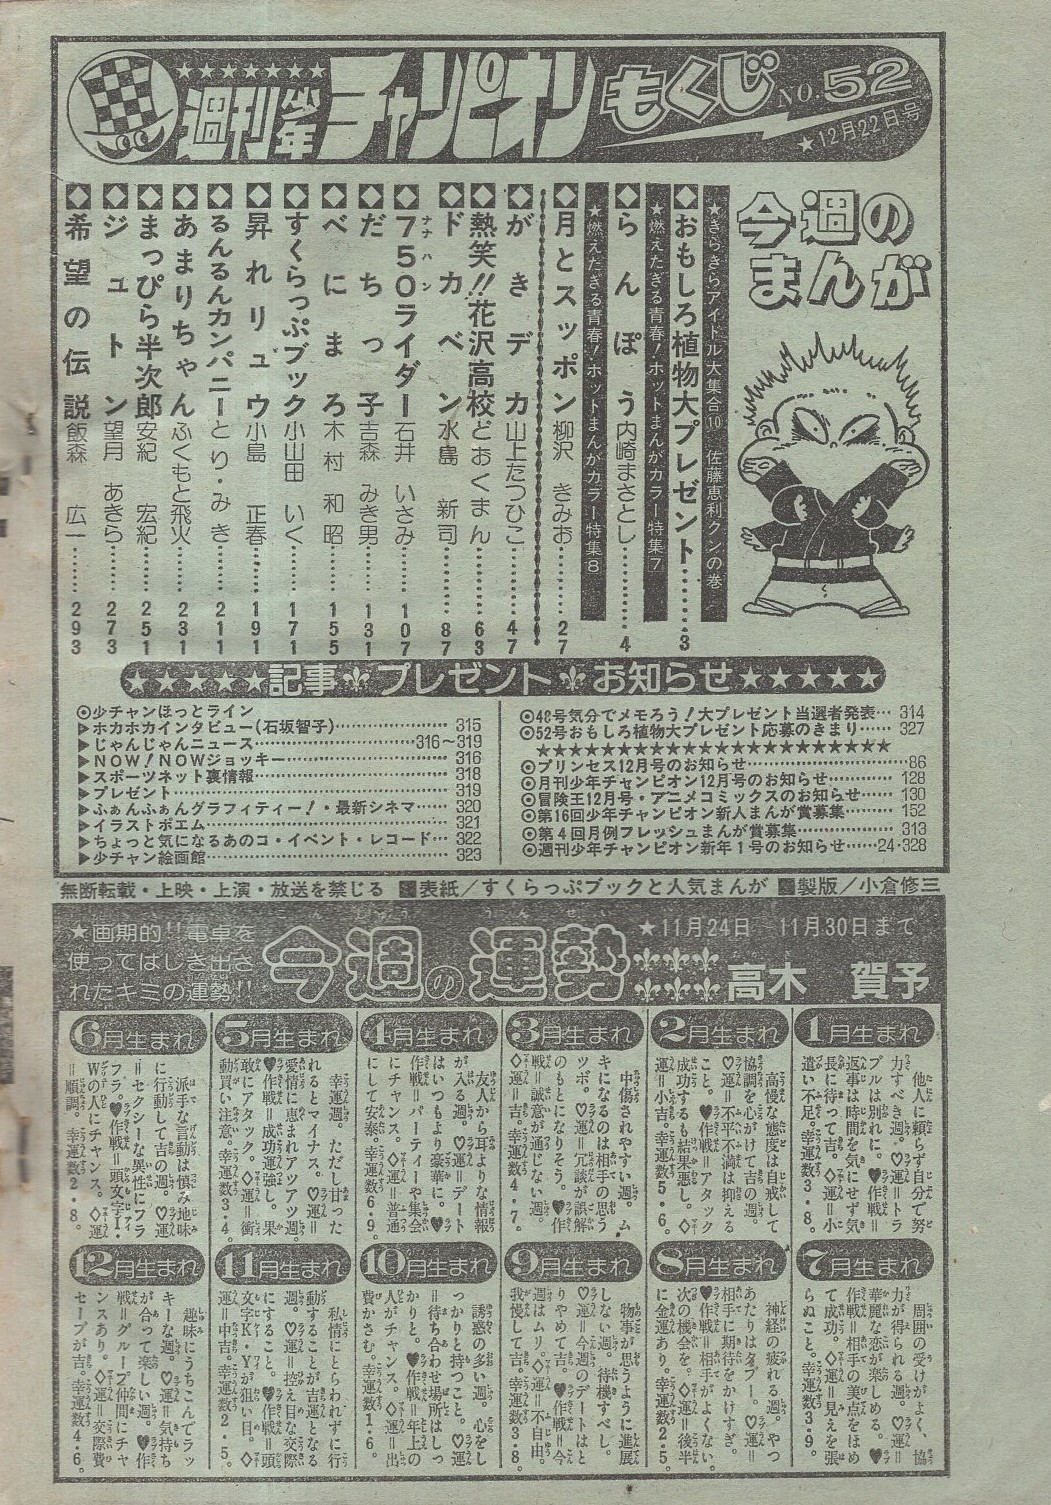 週刊少年チャンピオン もくじ NO.52
★12月22日号
今週の
まんが
★きらきらアイドル大集合⑩ 佐藤恵利クンの巻
おもしろ植物大プレゼント……3
★燃えたぎる青春!ホットまんがカラー特集⑦
らんぽう 内崎まさとし……4
★燃えたぎる青春!ホットまんがカラー特集⑧
月とスッポン 柳沢きみお……27
がきデカ 山上たつひこ……47
熱笑!!花沢高校 どおくまん……63
ドカベン 水島新司……87
750ライダー 石井いさみ……107
ナナハン
だちっ子 吉森みき男……131
べにまろ 木村和昭……155
すくらっぷブック 小山田いく……171
昇れリュウ 小島正春……191
るんるんカンパニー とり・みき……211
あまりちゃん ふくもと飛火……231
まっぴら半次郎 安紀宏紀……251
ジュトン 望月あきら……273
希望の伝説 飯森広一……293
★★★★★記事 プレゼント お知らせ★★★★★
◉少チャンほっとライン
▶ホカホカインタビュー(石坂智子)……315
▶じゃんじゃんニュース……316〜319
▶NOW!NOWジョッキー……316
▶スポーツネット裏情報……318
▶プレゼント……319
▶ふぁんふぁんグラフィティー!・最新シネマ……320
▶イラストポエム……321
▶ちょっと気になるあのコ・イベント・レコード……322
▶少チャン絵画館……323
◉48号気分でメモろう!大プレゼント当選者発表…314
◉52号おもしろ植物大プレゼント応募のきまり……327
★★★★★★★★★★★★★★★★★★★★
◉プリンセス12月号のお知らせ……86
◉月刊少年チャンピオン12月号のお知らせ……128
◉冒険王12月号・アニメコミックスのお知らせ……130
◉第16回少年チャンピオン新人まんが賞募集……152
◉第4回月例フレッシュまんが賞募集……313
◉週刊少年チャンピオン新年1号のお知らせ……24・328
無断転載・上映・上演・放送を禁じる 表紙/すくらっぷブックと人気まんが 製版/小倉修三
★画期的!!電卓を
使ってはじき出さ
れたキミの運勢!!
こんしゅう うんせい
今週の運勢
★11月24日―11月30日まで
高木 賀予
1月生まれ
他人に頼らず自分で努
力すべき週。♡運＝トラ
ブルは別れに。♥作戦＝
返事は時間を気にせず気
長に待って吉。◇運＝小
遣い不足。幸運数3・8。
2月生まれ
高慢な態度は自戒して
協調を心がけて吉の週。
♡運＝不平不満は抑える
こと。♥作戦＝アタック
成功するも結果悪し。◇
運＝小吉。幸運数5・6。
3月生まれ
中傷されやすい週。ム
キになるのは相手の思う
ツボ。♡運＝冗談が誤解
のもとになりそう。♥作
戦＝誠意が通じない週。
◇運＝吉。幸運数4・7。
4月生まれ
友人から耳よりな情報
が入る週。♡運＝デート
はいつもより豪華に。♥
作戦＝パーティーや集会
にチャンス。◇運＝普通
にして安泰。幸運数6・9。
5月生まれ
幸運週。ただし甘った
れるとマイナス。♡運＝
愛情に恵まれアツアツ週。
♥作戦＝成功運強し。果
敢にアタック。◇運＝衝
動買い注意。幸運数3・4。
6月生まれ
派手な言動は慎み地味
に行動して吉の週。♡運
＝セクシーな異性にフラ
フラ。♥作戦＝頭文字I・
Wの人にチャンス。◇運
＝順調。幸運数2・8。
7月生まれ
周囲の受けがよく、協
力が得られる週。♡運＝
華麗な恋が楽しめる。♥
作戦＝相手の美点をほめ
て成功。◇運＝見えを張
らぬこと。幸運数3・9。
8月生まれ
神経の疲れる週。やつ
あたりはタブー。♡運＝
相手に期待をかけすぎ。
♥作戦＝相手がよくない。
次の機会を。◇運＝後半
に金運あり。幸運数2・5。
9月生まれ
物事が思うように進展
しない週。待機すべし。
♡運＝今週のデートはと
りやめて吉。♥作戦＝今
週はムリ。◇運＝不自由。
我慢して吉。幸運数3・8。
10月生まれ
誘惑の多い週。心をし
っかりと持つこと。♡運
＝待ち合わせ場所はしっ
かりと。♥作戦＝年上の
人がチャンス。◇運＝出
費かさむ。幸運数1・6。
11月生まれ
私情にとらわれずに行
動することが吉運となる
週。♡運＝控え目な交際
にすること。♥作戦＝頭
文字K・Yが狙い目。◇
運＝中吉。幸運数2・5。
12月生まれ
趣味にうちこんでラッ
キーな週。♡運＝気持ち
が合って楽しい週。♥作
戦＝グループ仲間にチャ
ンスあり。◇運＝交際費
セーブが吉。幸運数4・6。